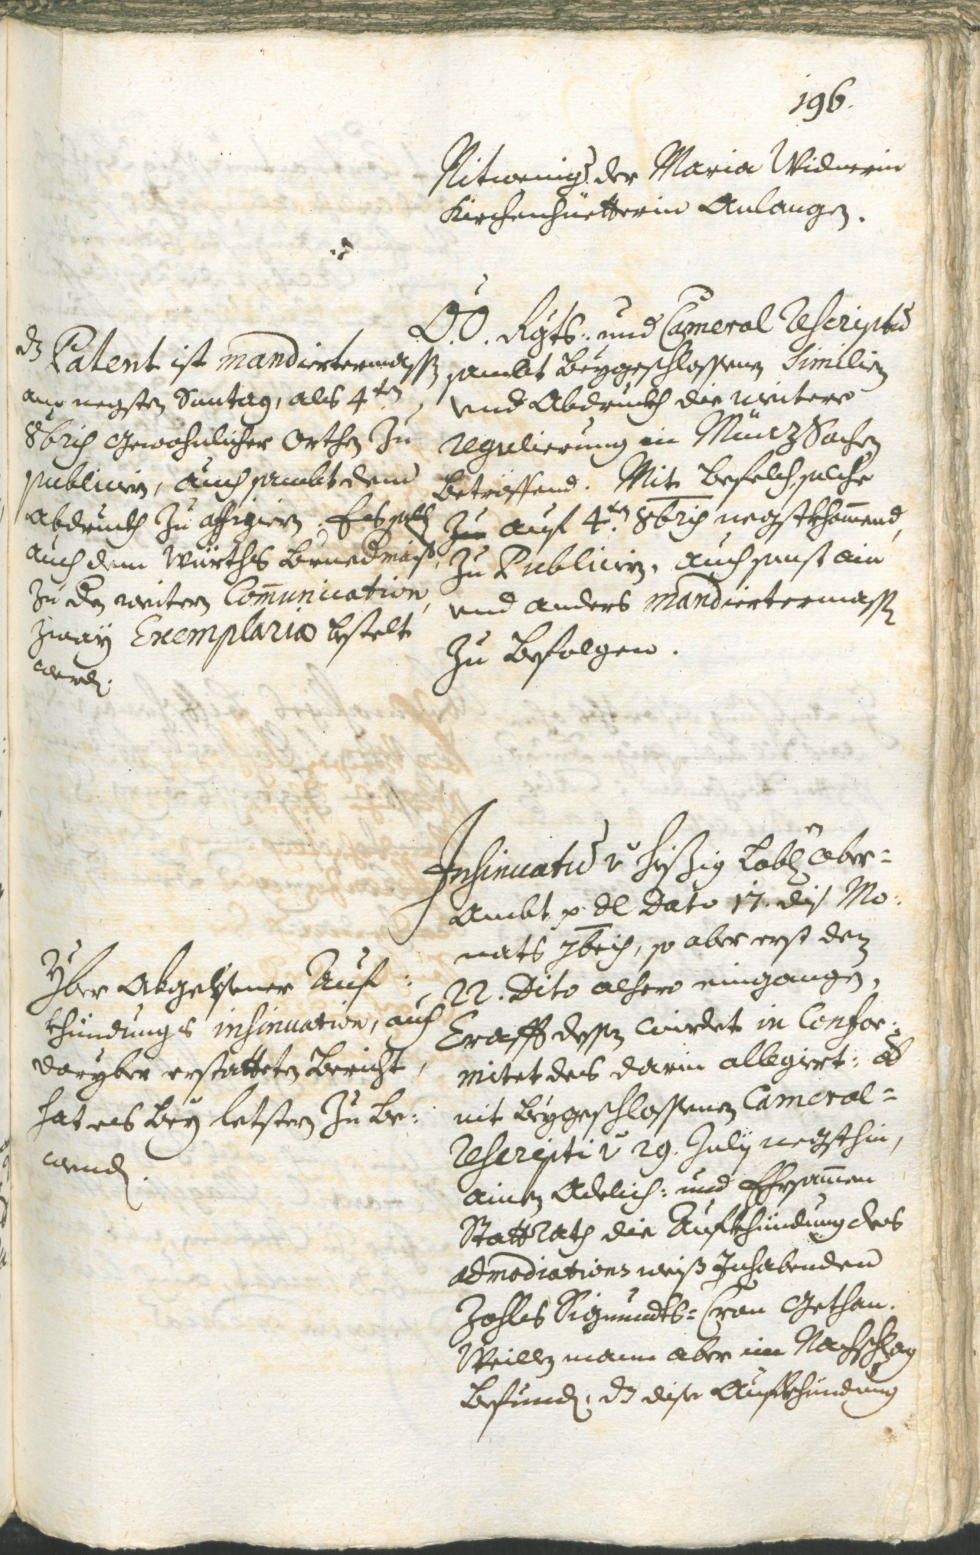 196.
Nitweniger der Maria Widnerin
Kirchenhietterin Anlangen.
O: Ö. Rgts: und Cameral Rescriptum
sambt beygeschlossenen Similien
und Abdruckh die weitere
regulierung in Münz Sachen
betreffend. Mit befelch solche
zu auf 4.ten 8bris negstkhommend,
zu Publiciern, auch sonst ain
und anders mandiertermassen
zu befolgen.
dz Patent ist mandiertermassen
am negsten Sontag, als 4ten
8bris gewohnlicher Orthen zu
publiciern, auch sambt dem
Abdruckh zu affigiern. Es solle
auch dem Würths
zu der weitern Communication,
zway Exemplaria bestelt
werden.
Insinuatum von hießig Löbl: ober=
Ambt p. de Dato 17. dis Mo:
nats 7bris, so aber erst den
22. Dito alhero eingangen,
Crafft dessen wirdet in Confor:
mitet des darin allegiert: und
mit beygeschlossenen Cameral=
Rescripti von 29. July negsthin,
ainen Adelich: und Ehrsammen
Stattrath die Aufkhündung des
admodiations weiß Inhabenden
Zohls Sigmundts=Cron gethan.
Weillen mann aber im Nachschlag
befunden, dz dise Aufkhündung
Yber abgelesener Auf:
khündungs insinuation, auch
daryber erstatteten Bericht,
hat es bey letstern zu be:
wenden.